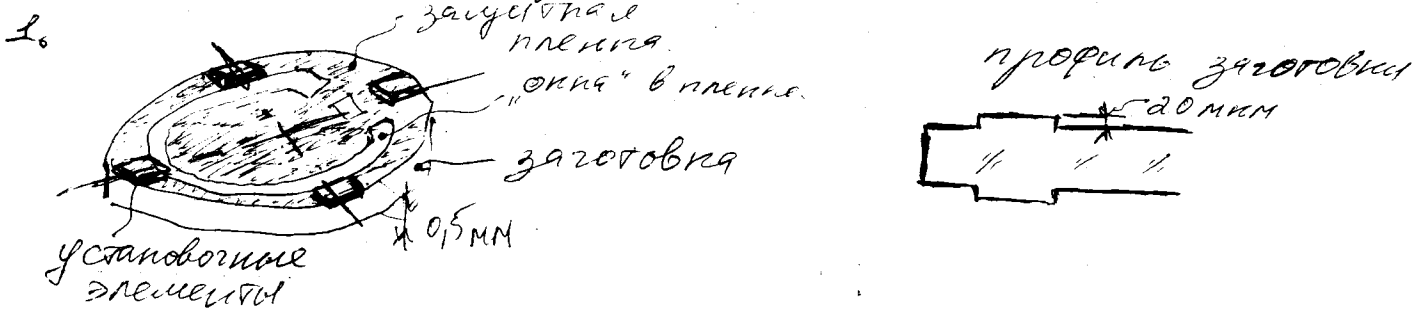 1.
защитная
пленка.
„окна" в пленке.
заготовка
0,5 мм
установочные
элементы
профиль заготовки
20 мкм